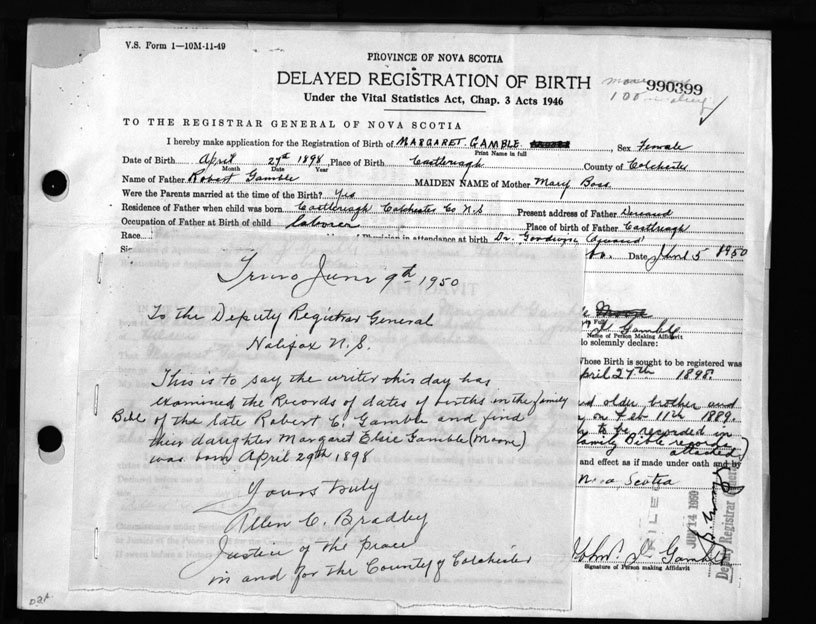 V.S. Form 1—10M-11-49
PROVINCE OF NOVA SCOTIA
DELAYED REGISTRATION OF BIRTH
990399
Under the Vital Statistics Act, Chap. 3 Acts 1946
100
TO THE REGISTRAR GENERAL OF NOVA SCOTIA
I hereby make application for the Registration of Birth of MARGARET GAMBLE , Sex Female
Print Name in full
Date of Birth April 27th 1898 Place of Birth Castlereagh County of Colchester
Month Date Year
Name of Father Robert Gamble MAIDEN NAME of Mother Mary Boss
Were the Parents married at the time of the Birth? Yes
Residence of Father when child was born Castlereagh Colchester Co N.S Present address of Father Deceased
Occupation of Father at Birth of child laborer Place of birth of Father Castlereagh
Race Physician in attendance at birth Dr.
Date June 5 1950
Truro June 9th 1950
To the Deputy Registrar General
Halifax N.S.
This is to say the writer this day has
examined the Records of dates of births in the family
Bible of the late Robert C. Gamble and find
their daughter Margaret Elsie Gamble (Moore)
was born April 29th 1898
Yours truly
Allen C. Bradley
Justice of the peace
in and for the County of Colchester
Gamble
Name of Person making Affidavit
do solemnly declare:
Whose Birth is sought to be registered was
April 27th 1898.
older brother and
on Feb 11th 1889.
to be recorded in
family Bible records
attached
and effect as if made under oath and by
Nova Scotia
FILED
JUL 14 1959
Deputy Registrar General
John Gamble
Signature of Person making Affidavit